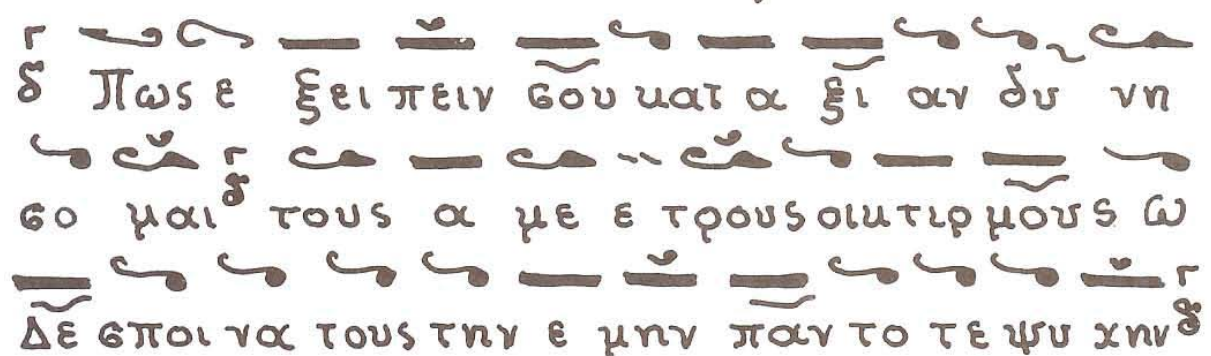 δ Πως ε ξει πειν σου κατ α ξι αν δυ νη
σο μαι δ τους α με ε τρους οικτιρ μους ω
Δε σποι να τους την ε μην παν το τε ψυ χην δ